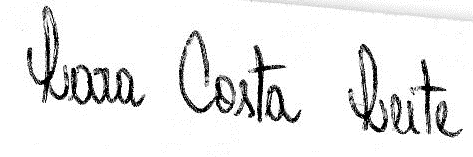 Lara Costa Leite